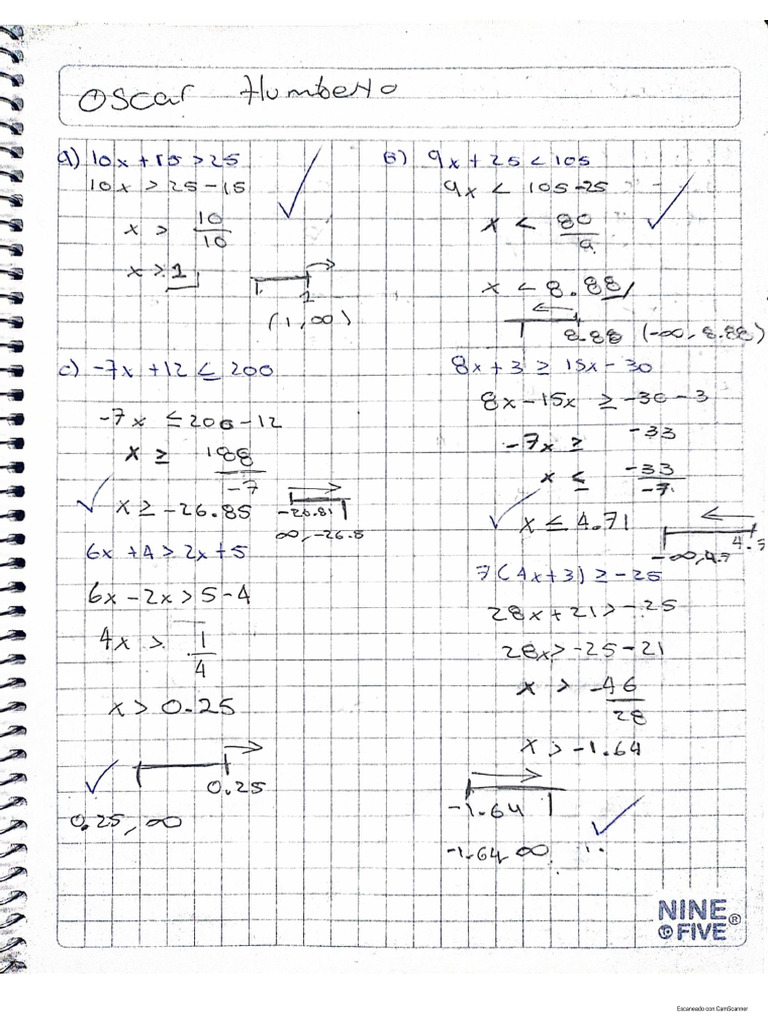 Oscar Humberto
a) 10x + 15 > 25
10x > 25 - 15
x > 10/10
x > 1
1
(1, ∞)
B) 9x + 25 < 105
9x < 105 - 25
x < 80/9
x < 8.88
8.88 (-∞, 8.88)
c) -7x + 12 ≤ 200
-7x ≤ 200 - 12
x ≥ 188/-7
x ≥ -26.85
-26.81
∞, -26.8
8x + 3 ≥ 15x - 30
8x - 15x ≥ -30 - 3
-7x ≥ -33
x ≤ -33/-7
x ≤ 4.71
4.7
-∞, 4.7
6x + 4 > 2x + 5
6x - 2x > 5 - 4
4x > 1/4
x > 0.25
0.25
0.25, ∞
7(4x + 3) ≥ -25
28x + 21 > -25
28x > -25 - 21
x > -46/28
x > -1.64
-1.64
-1.64, ∞
NINE
TO FIVE®
Escaneado con CamScanner